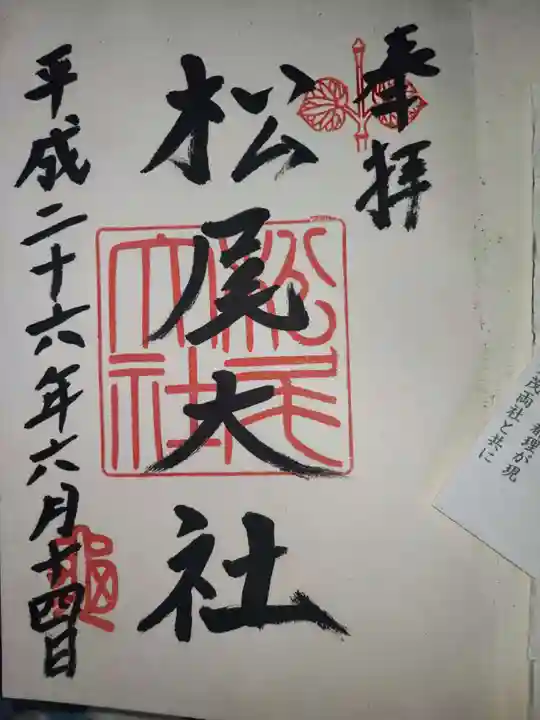 奉拝
松尾大社
松尾大社
平成二十六年六月十四日
茂両社と共に